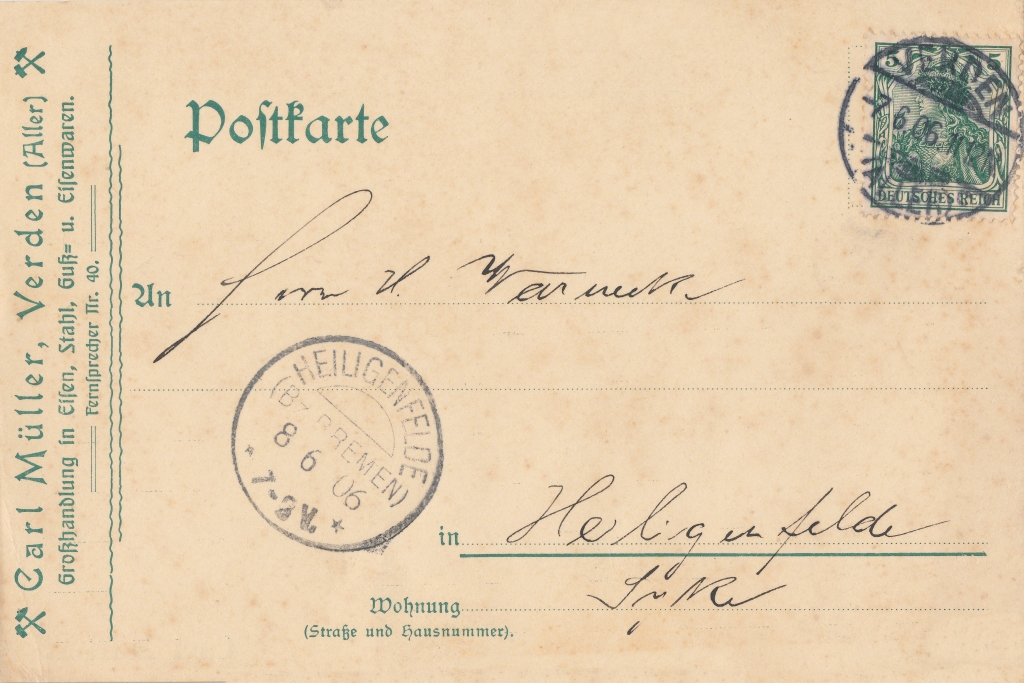 Carl Müller, Verden (Aller)
Großhandlung in Eisen, Stahl, Guß= u. Eisenwaren.
Fernsprecher Nr. 40.
Postkarte
5 5
DEUTSCHES REICH
VERDEN
7 6.06.
(ALLER)
An Herrn H. Warnecke
HEILIGENFELDE
(BZ. BREMEN)
8 6 06
7-8 N.
in Heiligenfelde
Syke
Wohnung
(Straße und Hausnummer).